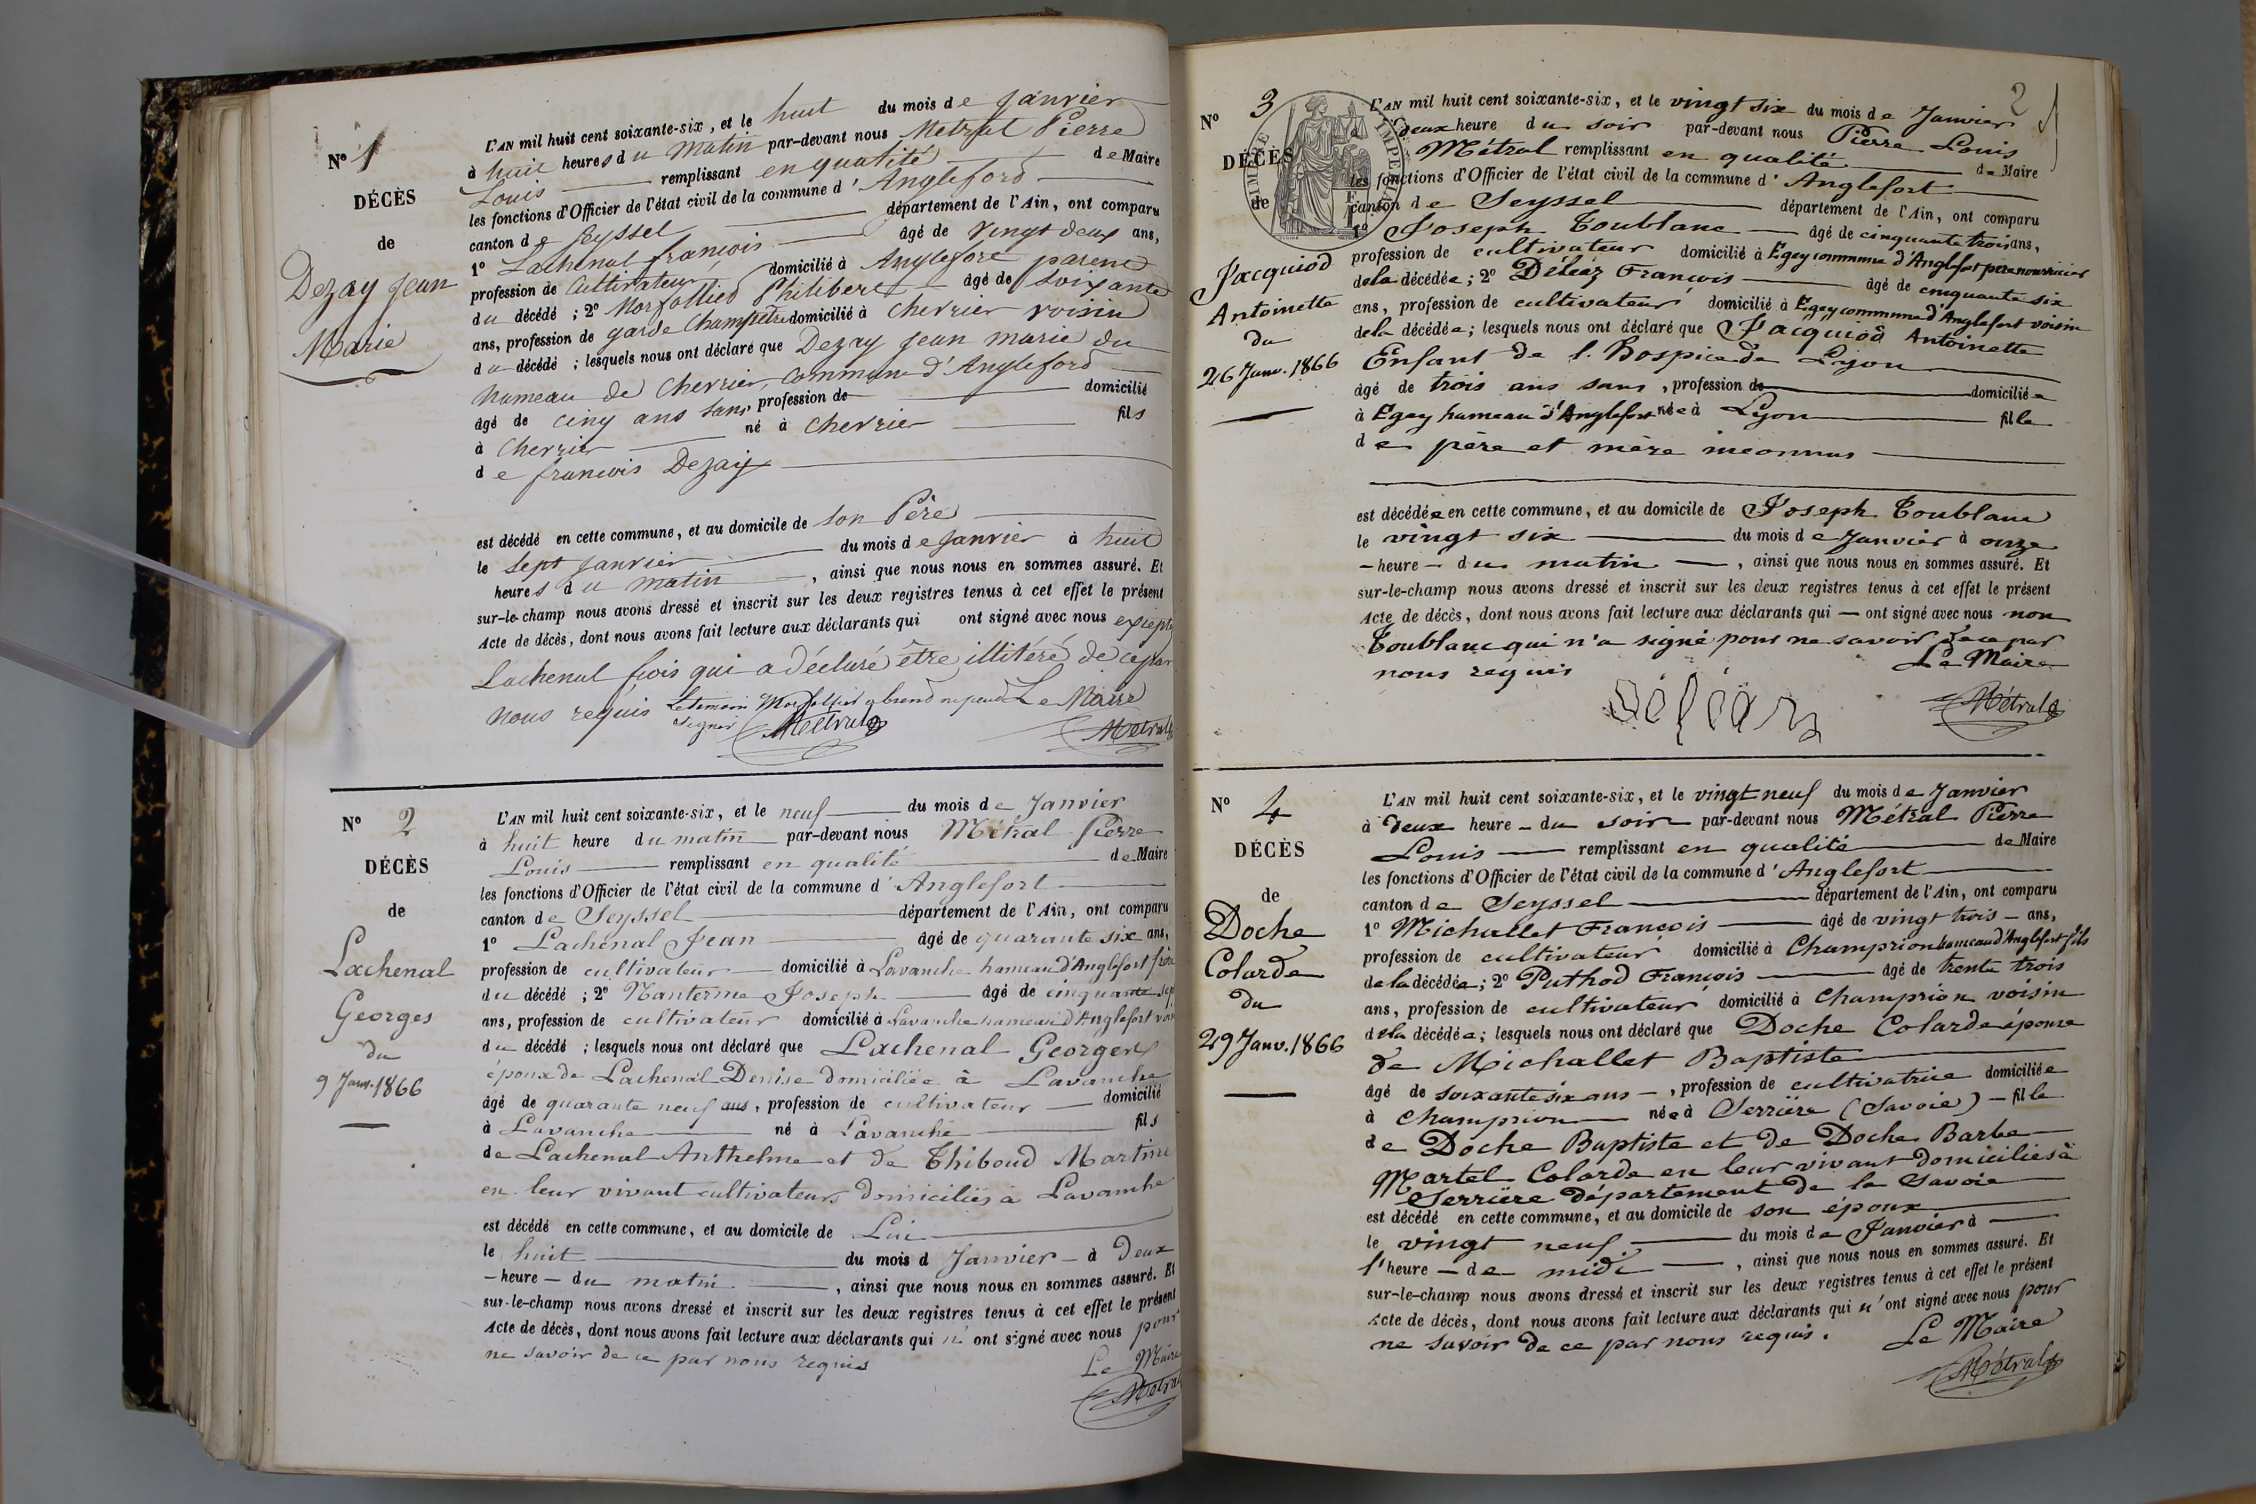 Nº 1
DÉCÈS
de
Dezay Jean
Marie
L'AN mil huit cent soixante-six, et le huit du mois de Janvier
à huit heures du matin par-devant nous Métral Pierre
Louis remplissant en qualité de Maire
les fonctions d'Officier de l'état civil de la commune d'Angleford
canton de Seyssel département de l'Ain, ont comparu
1º Lachenal françois âgé de vingt deux ans,
profession de Cultivateur domicilié à Anglefort parent
du décédé ; 2º Morfollied Philibert âgé de soixante
ans, profession de garde Champetre domicilié à Chevrier voisin
du décédé ; lesquels nous ont déclaré que Dezay Jean marie du
hameau de Chevrier, commune d'Angleford
âgé de cinq ans sans profession de domicilié
à Chevrier né à Chevrier fils
de francois Dezay
est décédé en cette commune, et au domicile de son Père
le sept Janvier du mois de Janvier à huit
heures du matin, ainsi que nous nous en sommes assuré. Et
sur-le-champ nous avons dressé et inscrit sur les deux registres tenus à cet effet le présent
Acte de décès, dont nous avons fait lecture aux déclarants qui ont signé avec nous excepté
Lachenal fcois qui a déclaré être illitéré de ce par
nous requis Le temoin ne peut Le Maire
signer Métral Métral
Nº 2
DÉCÈS
de
Lachenal
Georges
du
9 Janv. 1866
L'AN mil huit cent soixante-six, et le neuf du mois de Janvier
à huit heure du matin par-devant nous Métral Pierre
Louis remplissant en qualité de Maire
les fonctions d'Officier de l'état civil de la commune d'Anglefort
canton de Seyssel département de l'Ain, ont comparu
1º Lachenal Jean âgé de quarante six ans,
profession de cultivateur domicilié à Lavanche hameau d'Anglefort frère
du décédé ; 2º Nanterme Joseph âgé de cinquante sept
ans, profession de cultivateur domicilié à Lavanche hameau d'Anglefort voisin
du décédé ; lesquels nous ont déclaré que Lachenal Georges
époux de Lachenal Denise domiciliée à Lavanche
âgé de quarante neuf ans, profession de cultivateur domicilié
à Lavanche né à Lavanche fils
de Lachenal Anthelme et de Thiboud Martine
en leur vivant cultivateurs domiciliés à Lavanche
est décédé en cette commune, et au domicile de Lui
le huit du mois d Janvier à Deux
heure du matin, ainsi que nous nous en sommes assuré. Et
sur-le-champ nous avons dressé et inscrit sur les deux registres tenus à cet effet le présent
Acte de décès, dont nous avons fait lecture aux déclarants qui n' ont signé avec nous pour
ne savoir de ce par nous requis
Le Maire
Métral
2
Nº 3
DÉCÈS
de
TIMBRE IMPERIAL
Jacquiod
Antoinette
du
26 Janv. 1866
L'AN mil huit cent soixante-six, et le vingt six du mois de Janvier
à deux heure du soir par-devant nous Pierre Louis
Métral remplissant en qualité de Maire
les fonctions d'Officier de l'état civil de la commune d'Anglefort
canton de Seyssel département de l'Ain, ont comparu
1º Joseph Toublanc âgé de cinquante trois ans,
profession de cultivateur domicilié à Egey commune d'Anglefort père nourricier
de la décédée ; 2º Déléaz Francois âgé de cinquante six
ans, profession de cultivateur domicilié à Egey commune d'Anglefort voisin
de la décédée ; lesquels nous ont déclaré que Jacquiod Antoinette
Enfant de l. hospice de Lyon
âgé de trois ans sans, profession de domiciliée
à Egey hameau d'Anglefort née à Lyon fille
de père et mère inconnus
est décédée en cette commune, et au domicile de Joseph Toublanc
le vingt six du mois de Janvier à onze
heure du matin, ainsi que nous nous en sommes assuré. Et
sur-le-champ nous avons dressé et inscrit sur les deux registres tenus à cet effet le présent
Acte de décès, dont nous avons fait lecture aux déclarants qui ont signé avec nous non
Toublanc qui n'a signé pour ne savoir de ce par
nous requis Le Maire
Métral
Nº 4
DÉCÈS
de
Doche
Colarde
du
29 Janv. 1866
L'AN mil huit cent soixante-six, et le vingt neuf du mois de Janvier
à deux heure du soir par-devant nous Métral Pierre
Louis remplissant en qualité de Maire
les fonctions d'Officier de l'état civil de la commune d'Anglefort
canton de Seyssel département de l'Ain, ont comparu
1º Michallet Francois âgé de vingt trois ans,
profession de cultivateur domicilié à Champrion hameau d'Anglefort fils
de la décédée ; 2º Puthod François âgé de trente trois
ans, profession de cultivateur domicilié à Champrion voisin
de la décédée ; lesquels nous ont déclaré que Doche Colarde épouse
de Michallet Baptiste
âgé de soixante six ans, profession de cultivatrice domiciliée
à Champrion née à Serrière (Savoie) fille
de Doche Baptiste et de Doche Barbe
Martel Colarde en leur vivant domiciliés à
Serrière département de la Savoie
est décédé en cette commune, et au domicile de son époux
le vingt neuf du mois de Janvier à
l'heure de midi, ainsi que nous nous en sommes assuré. Et
sur-le-champ nous avons dressé et inscrit sur les deux registres tenus à cet effet le présent
Acte de décès, dont nous avons fait lecture aux déclarants qui n'ont signé avec nous pour
ne savoir de ce par nous requis. Le Maire
Métral